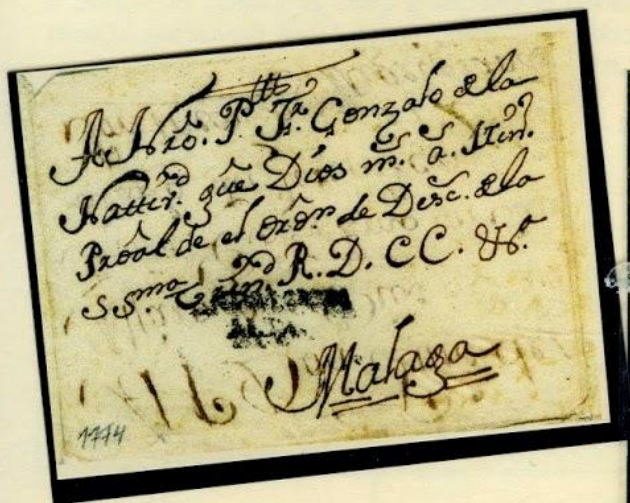 A Nrõ. P. Fr. Gonzalo de la
Nattiv.d que Dios m.s a.s Min.
Prõal de el Orđn de Desc. de la
SSma Trin.d R. D. CC. &a.
Malaga
1774